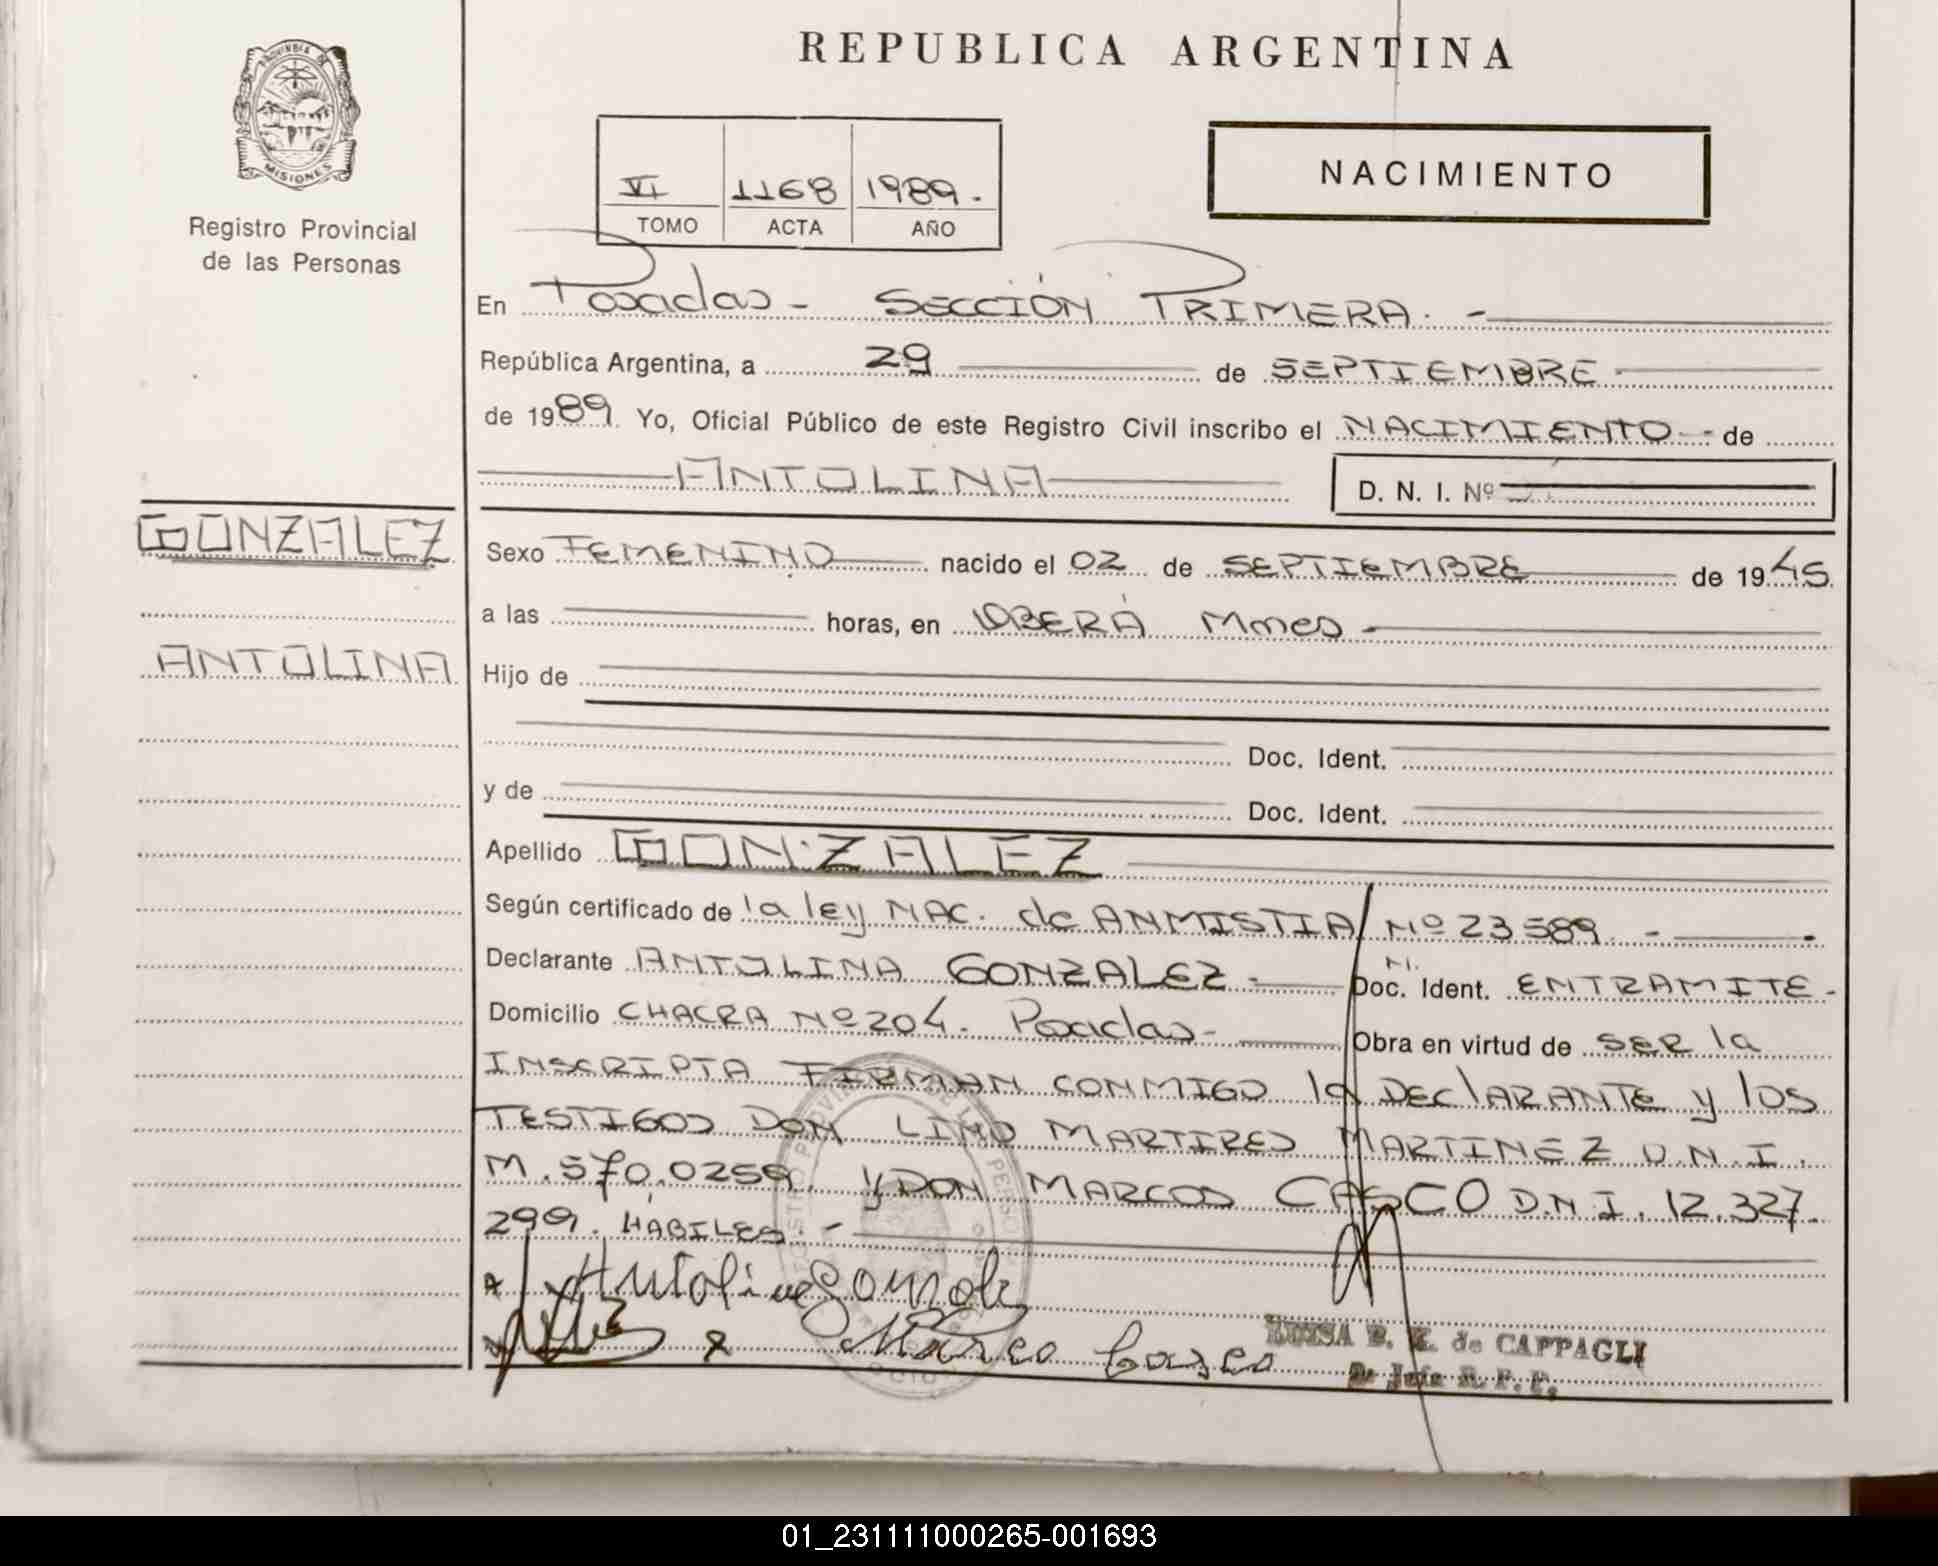 REPUBLICA ARGENTINA
PROVINCIA DE MISIONES
Registro Provincial
de las Personas
VI 1168 1989.
TOMO ACTA AÑO
NACIMIENTO
En Posadas - SECCIÓN PRIMERA. -
República Argentina, a 29 de SEPTIEMBRE
de 1989. Yo, Oficial Público de este Registro Civil inscribo el NACIMIENTO - de
ANTOLINA D. N. I. Nº
GONZALEZ
ANTOLINA
Sexo FEMENINO nacido el 02 de SEPTIEMBRE de 1945
a las horas, en OBERÁ Mnes
Hijo de
Doc. Ident.
y de Doc. Ident.
Apellido GONZALEZ
Según certificado de la ley NAC. de ANMISTIA Nº 23589. -
Declarante ANTOLINA GONZALEZ - Doc. Ident. ENTRAMITE -
Domicilio CHACRA Nº 204. Posadas - Obra en virtud de SER la
INSCRIPTA FIRMAN CONMIGO la DEClARANTE y lOS
TESTIGOS DON LINO MARTIRES MARTINEZ D.N.I.
M. 570.0259. y DON MARCOS CASCO D.N.I. 12.327.
299. HABILES. -
Marco Casco
LUISA B. K. de CAPPAGLI
01_231111000265-001693